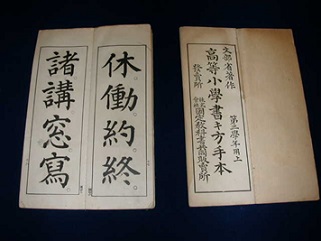 文部省著作
高等小學書キ方手本
第二學年用上
發賣所
株式會社國定教科書共同販賣所
休働約終
諸講窓寫